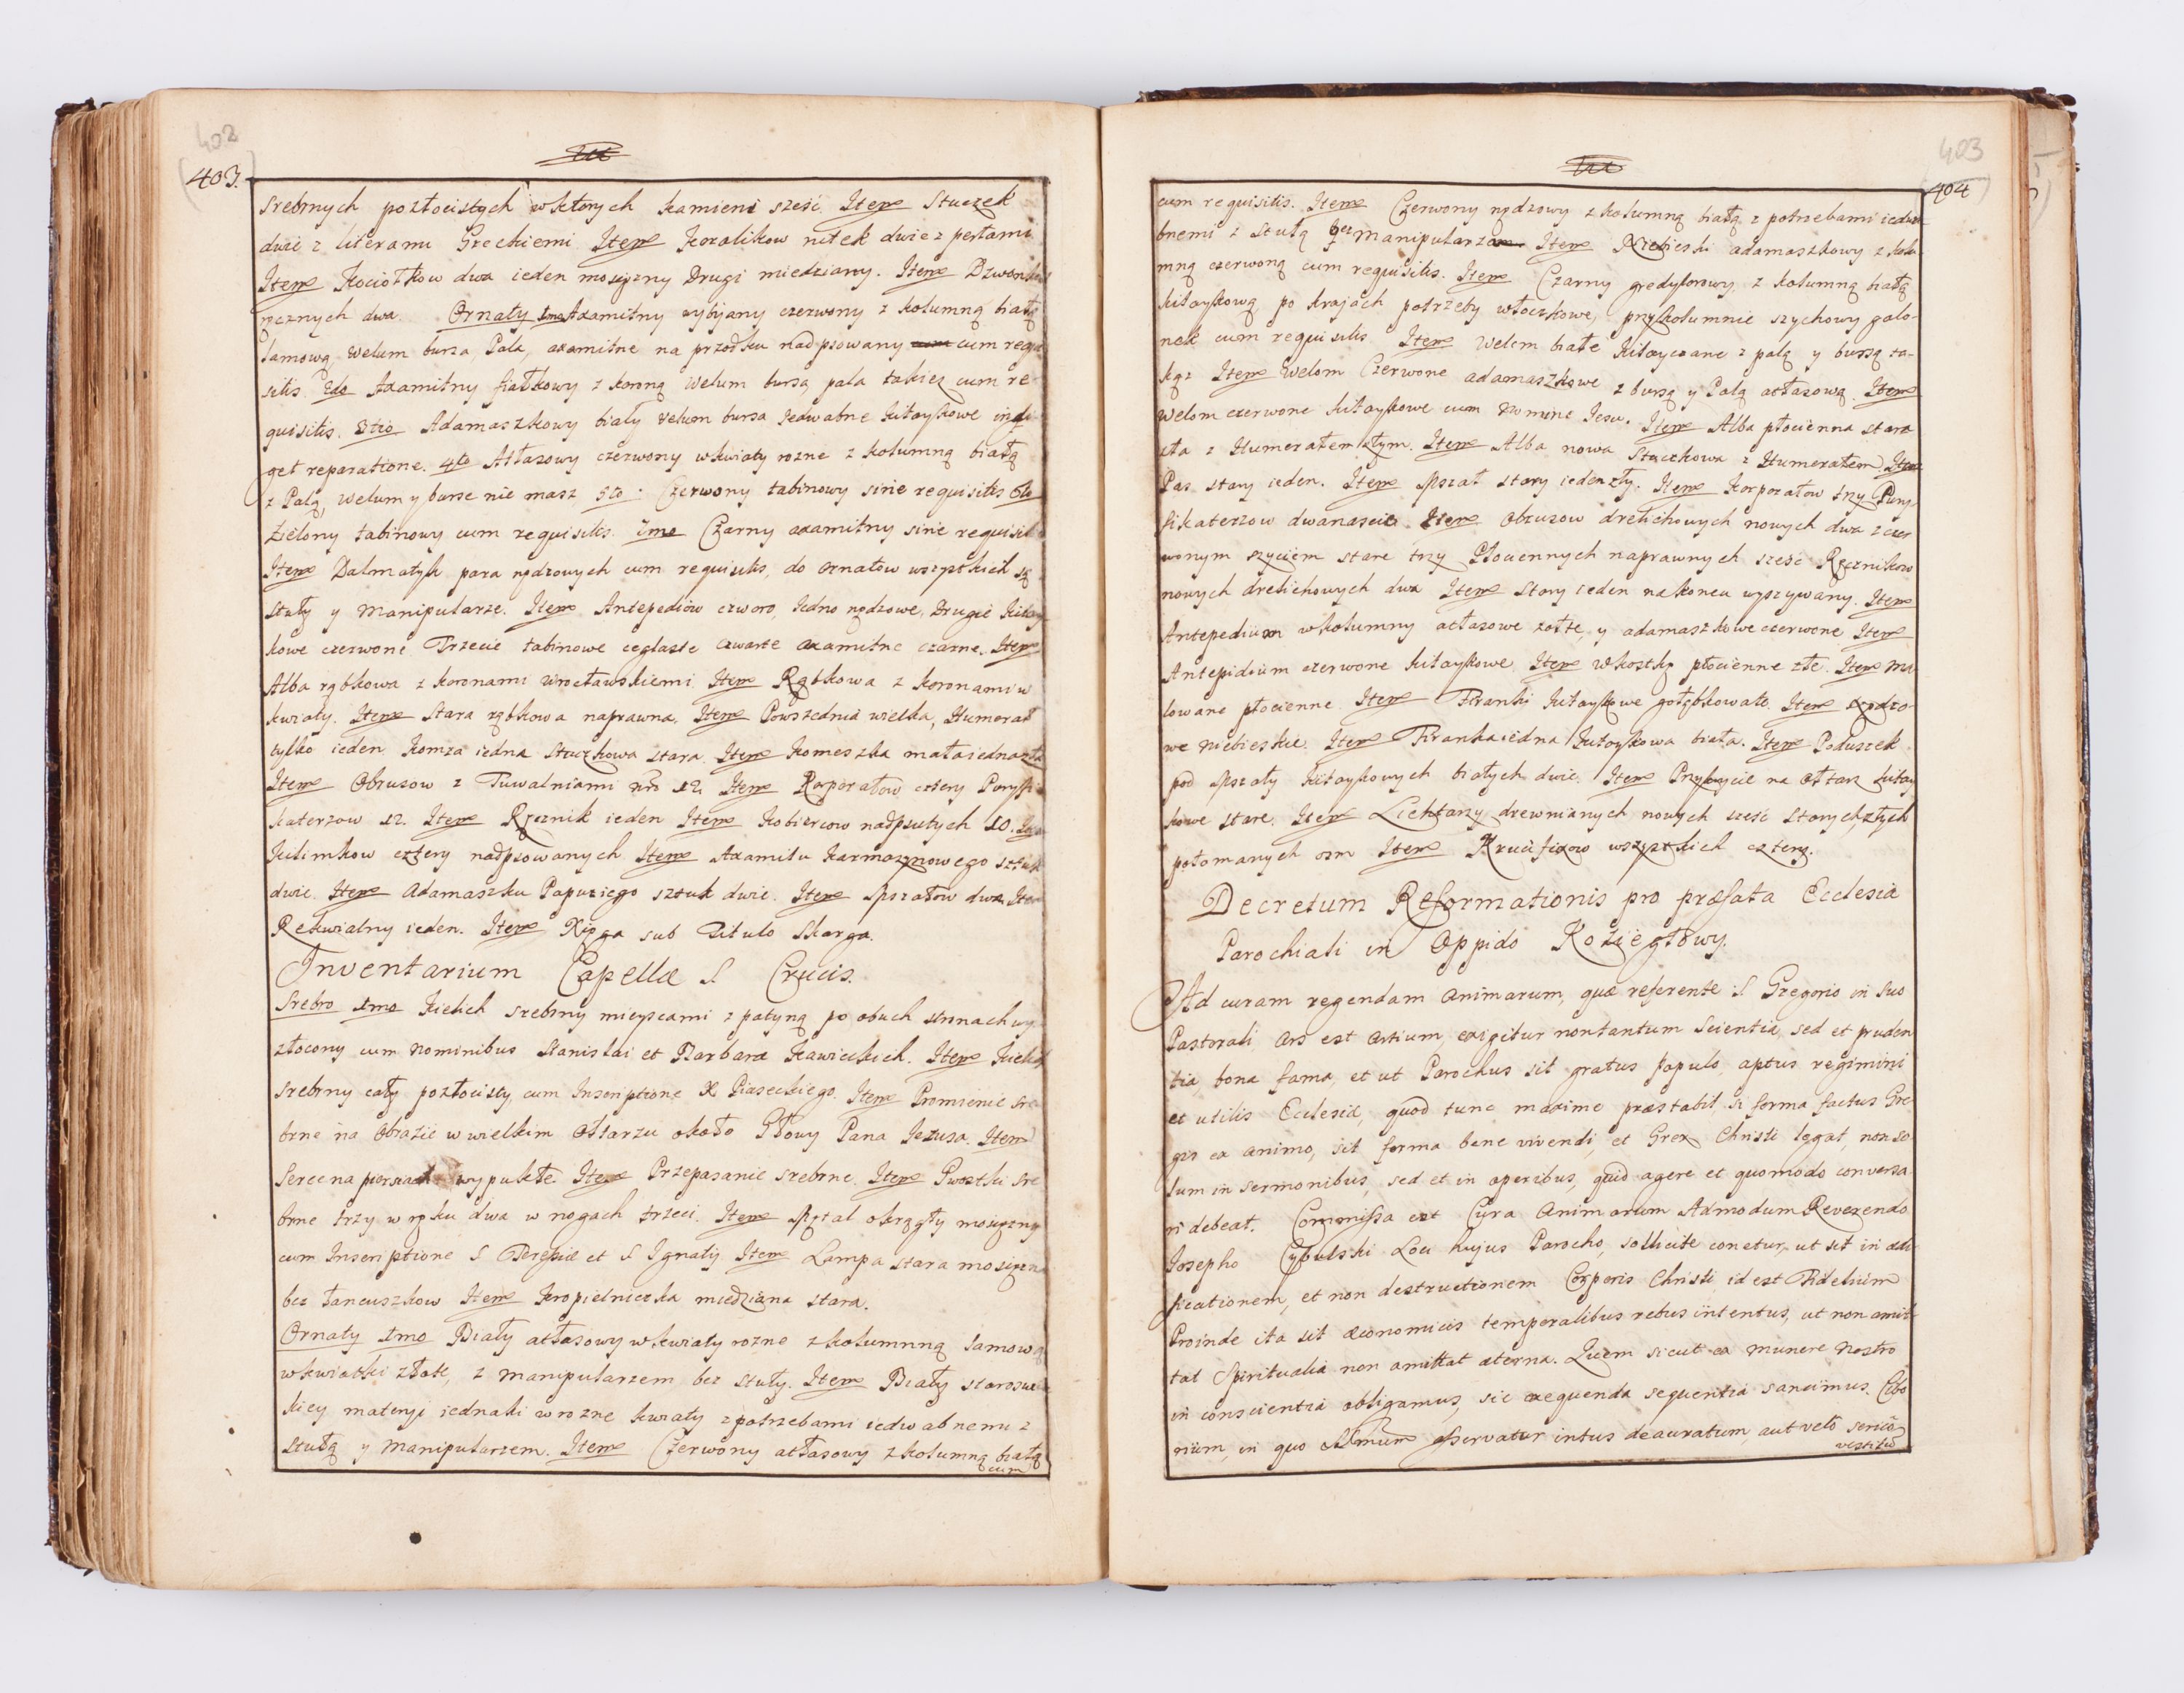 402
403.
srebrnych pozłocistych w ktorych kamieni sześć Item Stuczek
dwie z literami Greckiemi Item Koralikow nitek dwie z perłami
Item Kociołkow dwa ieden mosiężny Drugi miedziany. Item Dzwonkow
ręcznych dwa Ornaty 1mo Axamitny rybijany czerwony z kolumną białą
lamową Welum bursa, Pala, axamitne na przodku nadpsowany cum requi
sitis. 2do Axamitny fiałkowy z koroną Welum bursa, pala takiez cum re
quisitis. 3tio Adamaszkowy biały Velum bursa Jedwabne kitaykowe indi
get reparatione. 4to Atłasowy czerwony w kwiaty rozne z kolumną białą
z Palą, Welum y burse nie masz 5to: Czerwony tabinowy sine requisitis 6to
Zielony tabinowy cum requisitis. 7mo Czarny axamitny sine requisit
Item Dalmatyk para rządzowych cum requisitis, do ornatow wszystkich są
stuły y Manipularze. Item Antepediow czworo, Jedno rządzowe, Drugie Kitay
kowe czerwone Trzecie tabinowe ceglaste czwarte axamitne czarne. Item
Alba rąbkowa z koronami Wrocławskiemi Item Rąbkowa z koronami w
kwiaty. Item Stara rąbkowa naprawna. Item Powszednia wielka, Humerał
tylko ieden Komza iedna Stuczkowa stara Item Komeszka mała iedna zła
Item Obrusow z Tuwalniami nro 12. Item Korporałow cztery Puryfi
katerzow 12. Item Ręcznik ieden Item Kobiercow nadpsutych 10. Item
Kilimkow cztery nadpsowanych Item Axamitu karmazynowego sztuk
dwie. Item Adamaszku Papuziego sztuk dwie. Item Mszałow dwa, Item
Rekwialny ieden. Item Xięga sub Titulo Skarga.
Inventarium Capellæ S Crucis.
Srebro 1mo Kielich srebrny mieyscami z patyną po obuch stronach wy
złocony cum Nominibus Stanislai et Barbara Kawieckich. Item Kielich
srebrny cały pozłocisty cum Inscriptione X Piaseckiego. Item Promienie sre
brne na Obrazie w wielkim Ołtarzu około Głowy Pana Jezusa. Item
Serce na piersiach wypukłe Item Przepasanie srebrne. Item Gwozdzi sre
brne trzy w ręku dwa w nogach trzeci. Item Męźal okrągły mosiężny
cum Inscriptione S Teresiæ et S Ignatij Item Lampa stara mosiężna
bez łancuszkow Item Kropielniczka miedziana stara.
Ornaty 1mo Biały atłasowy w kwiaty rozne z kolumnną lamową
w kwiatki złote, z Manipularzem bez stuły. Item Biały staroswie
ckiey materyi iednaki w rozne kwiaty z potrzebami iedwabnemi z
stułą y Manipularzem. Item Czerwony atłasowy z kolumną białą
cum
403
404
cum requisitis. Item Czerwony rządzowy z kolumną białą z potrzebami iedwa
bnemi z Stułą bez Manipularza Item Niebieski adamaszkowy z kolu
mną czerwoną cum requisitis. Item Czarny gredytorowy z kolumną białą
kitaykową po krajach potrzeby włoczkowe, przy kolumnie szychowy galo
nek cum requisitis Item Welum białe Kitayczane z palą y bursą ta
kąz Item Welom Czerwone adamaszkowe z bursą y Palą atłasową. Item
Welom czerwone kitaykowe cum Nomine Iesu. Item Alba płocienna stara
zła z Humerałem złym. Item Alba nowa Stuczkowa z Humerałem. Item
Pas stary ieden. Item Mszał stary ieden zły. Item Korporałow trzy Pury
fikaterzow dwanascie Item Obrusow drelichowych nowych dwa z czer
wonym szyciem stare trzy Płociennych naprawnych sześć Ręcznikow
nowych drelichowych dwa Item Stary ieden na koncu wyszywany. Item
Antepedium w kolumny atłasowe zołte, y adamaszkowe czerwone Item
Antepidium czerwone kitaykowe Item W kostkę płocienne złe. Item Ma
lowane płocienne Item Firanki kitaykowe gołębkowate. Item rządzo
we niebieskie. Item Firanka iedna kitaykowa biała. Item Poduszek
pod Mszały kitaykowych białych dwie. Item Przykrycie na Ołtarz kitay
kowe stare. Item Lichtarzy drewnianych nowych sześć Starych, złych
połomanych osm Item Krucifixow wszystkich cztery.
Decretum Reformationis pro præfata Ecclesia
Parochiali in Oppido Koziegłowy.
Ad curam regendam Animarum, quæ referente S Gregorio in suo
Pastorali Ars est Artium, exigitur non tantum Scientia, sed et pruden
tia, bona fama, et ut Parochus sit gratus populo, aptus regimini
et utilis Ecclesiæ, quod tunc maxime præstabit, si forma factus Gre
gis ex animo, sit forma bene vivendi, et Grex Christi legat, non so
lum in sermonibus, sed et in operibus, quid agere et quomodo conversa
ri debeat. Commissa est Cura Animarum Admodum Reverendo
Josepho Cybulski Loci hujus Parocho, sollicite conetur, ut sit in ædi
ficationem, et non destructionem Corporis Christi id est Fidelium
Proinde ita sit œconomicis temporalibus rebus intentus, ut non amit
tat Spiritualia non amittat æterna. Quem sicut ex munere Nostro
in conscientia obligamus, sic exequenda sequentia sancimus. Cibo
rium, in quo SSmum asservatur intus deauratum, aut velo serico
vestitu